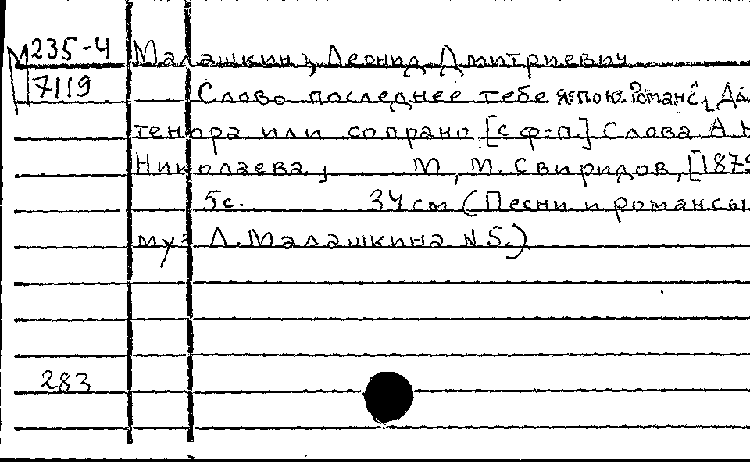 М 235-4 Малашкин, Леонид Дмитриевич
7119 Слово последнее тебе я пою. Романс, Дл
тенора или сопрано [с ф-п.] Слова А. Н
Николаева, М., М. Свиридов, [1879
5с. 34 см (Песни и романсы
муз Л. Малашкина №5.)
283